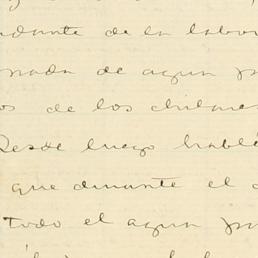 ndante de la labor
nada de agua p
os de los chilenos
Desde luego hablé
que durante el d
todo el agua pa